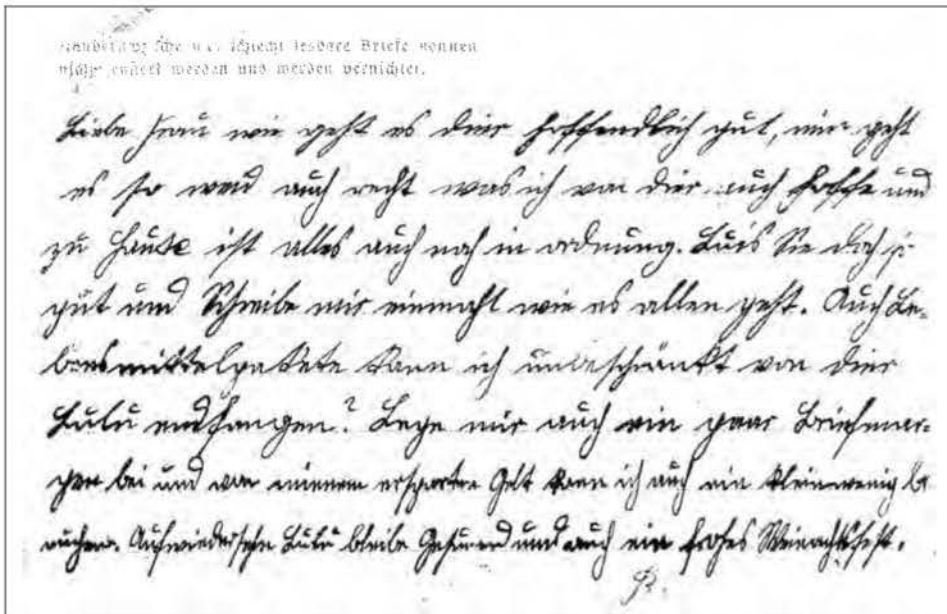 schlecht lesbare Briefe können
werden und werden vernichtet.
Liebe Frau wie geht es dier hoffendlich gut, mir geht
es so weid auch recht was ich von dier auch hoffe und
zu Hause ist alles auch noch in ordnung. Sie doch so
gut und Schreibe mir einmahl wie es allen geht. Auch Le-
bensmittelpakete kann ich unbeschränkt von dier
Lulu emdfangen? Lege mir auch ein paar Briefmar-
gen bei und von meinem ersparten Gelt kann ich auch ein klein wenig
Aufwiedersehn Lulu bleibe Gesund und auch ein frohes Weinachtsfest.